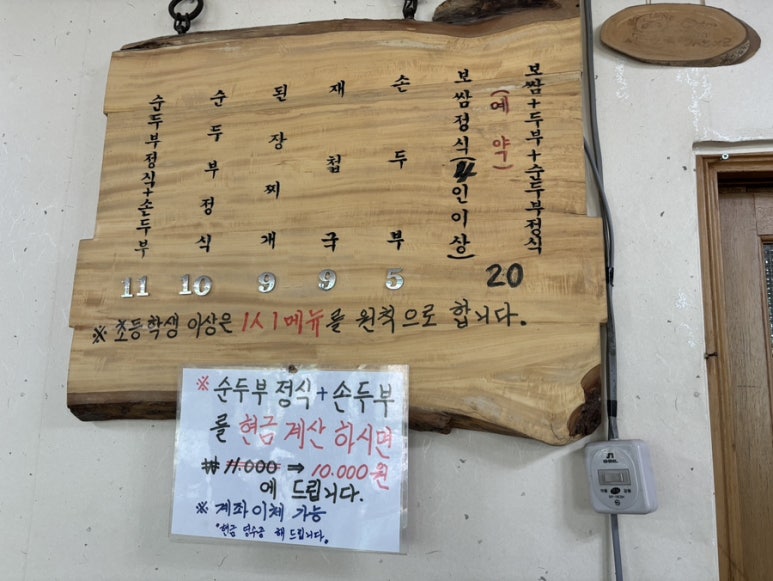 순두부정식+손두부
순두부정식
된장찌개
재첩국
손두부
보쌈정식(4인이상)
(예약)
보쌈+두부+순두부정식
11 10 9 9 5 20
※ 초등학생 이상은 1人 1메뉴를 원칙으로 합니다.
※ 순두부정식+손두부
를 현금 계산 하시면
₩ 11.000 ⇒ 10.000원
에 드립니다.
※ 계좌이체 가능
*현금 영수증 해 드립니다.